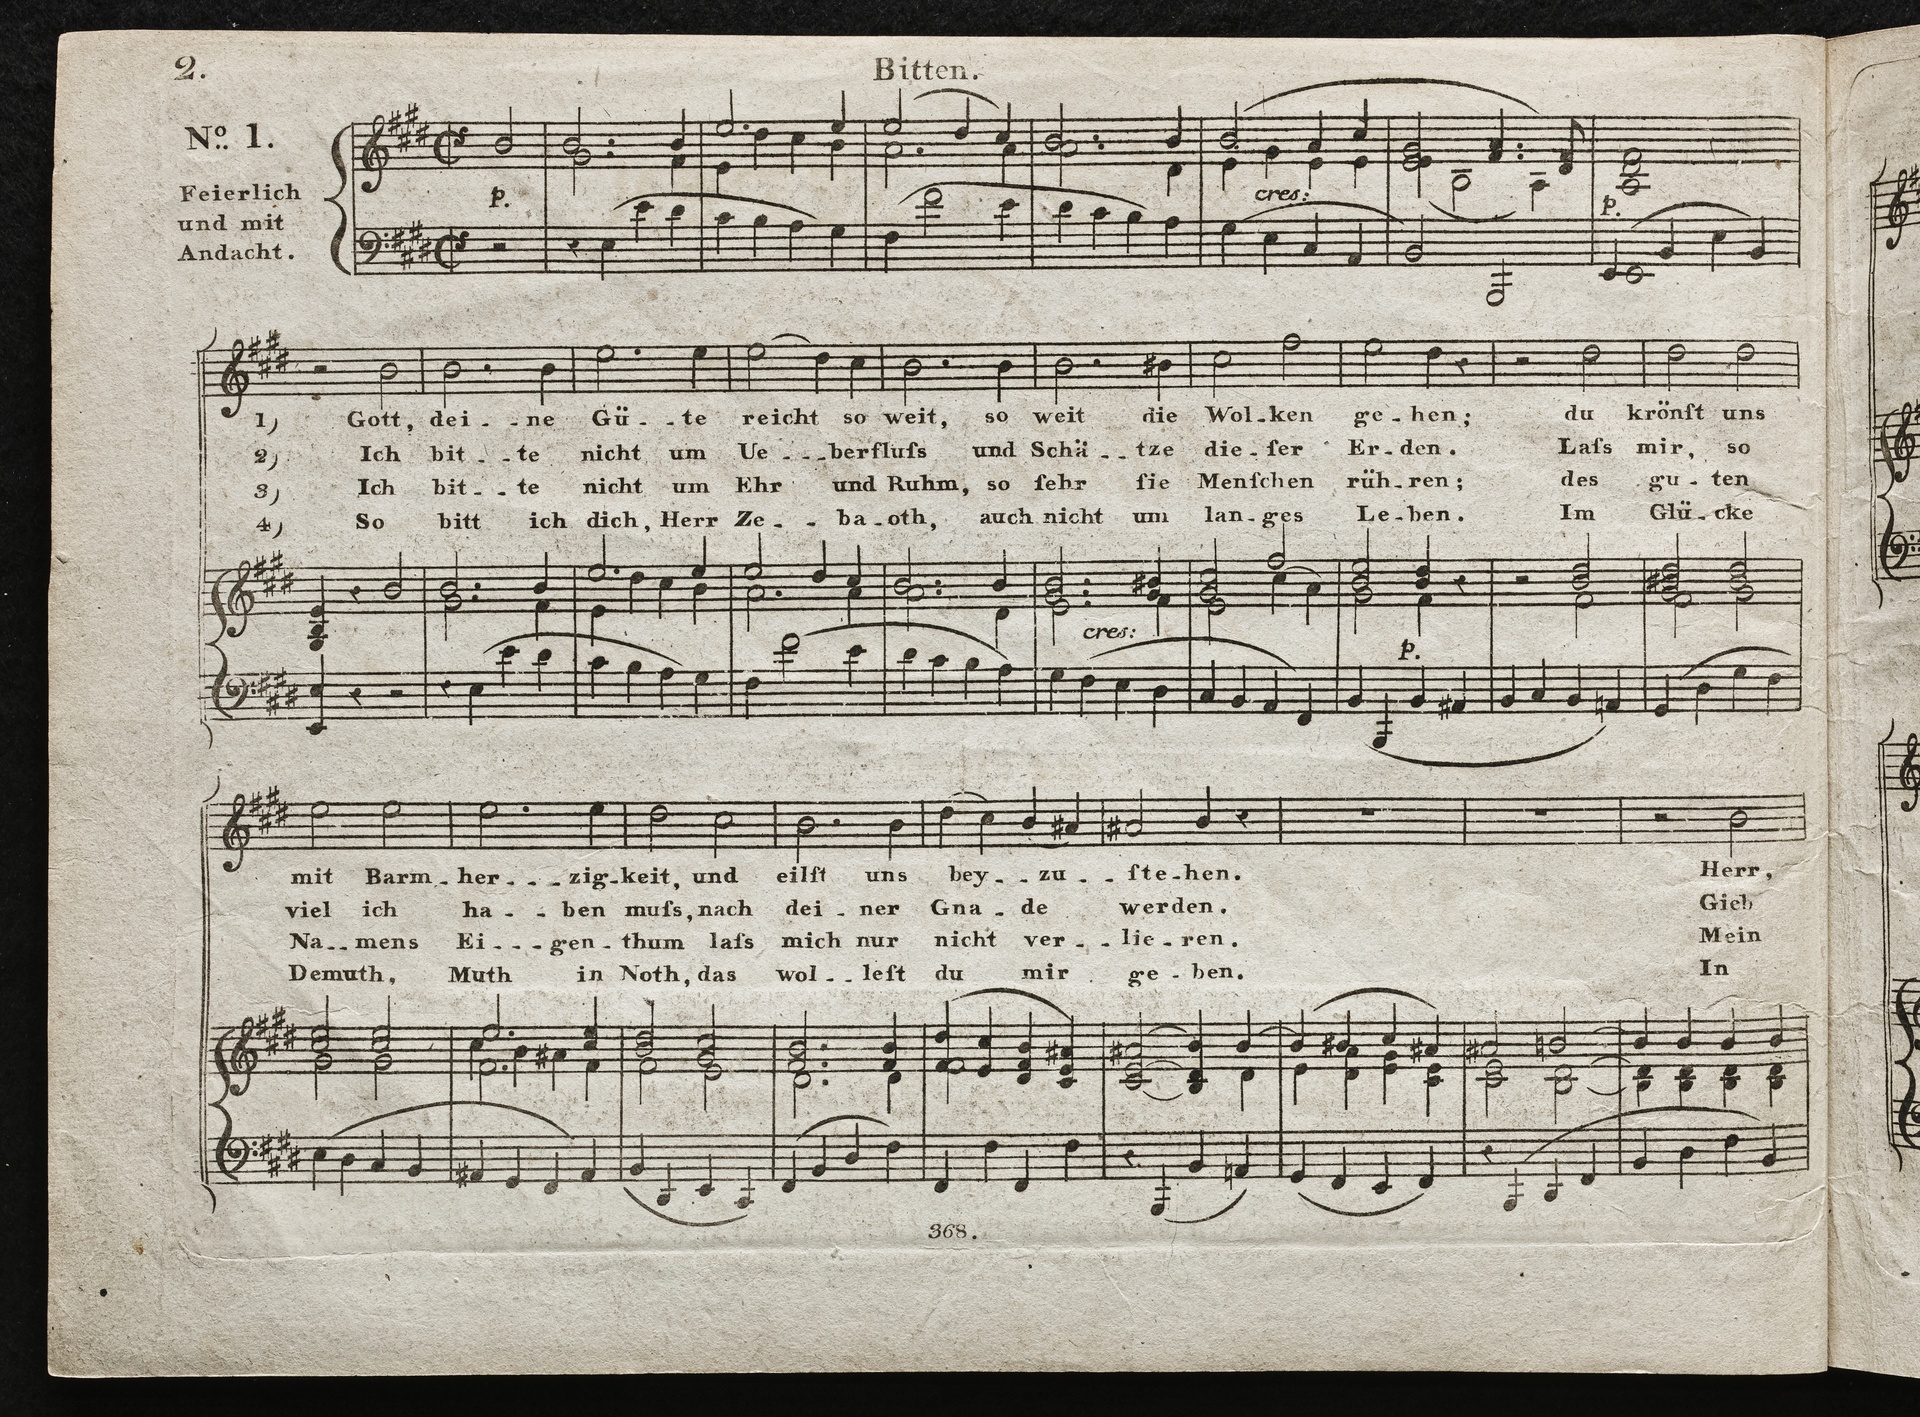 2.
Bitten.
No. 1.
Feierlich
und mit
Andacht.
p.
cres:
p.
1) Gott, dei - - ne Gü - - te reicht so weit, so weit die Wol - ken ge - hen; du krönſt uns
2) Ich bit - - te nicht um Ue - - - berfluſs und Schä - - tze die - ſer Er - den. Laſs mir, so
3) Ich bit - - te nicht um Ehr und Ruhm, so ſehr ſie Menſchen rüh - ren; des gu - ten
4) So bitt ich dich, Herr Ze - - ba - oth, auch nicht um lan - ges Le - ben. Im Glü - cke
cres:
p.
mit Barm - her - - - zig - keit, und eilſt uns bey - - zu - - ſte - hen. Herr,
viel ich ha - - ben muſs, nach dei - ner Gna - de werden. Gieb
Na - - mens Ei - - - gen - thum laſs mich nur nicht ver - - lie - ren. Mein
Demuth, Muth in Noth, das wol - - leſt du mir ge - ben. In
368.